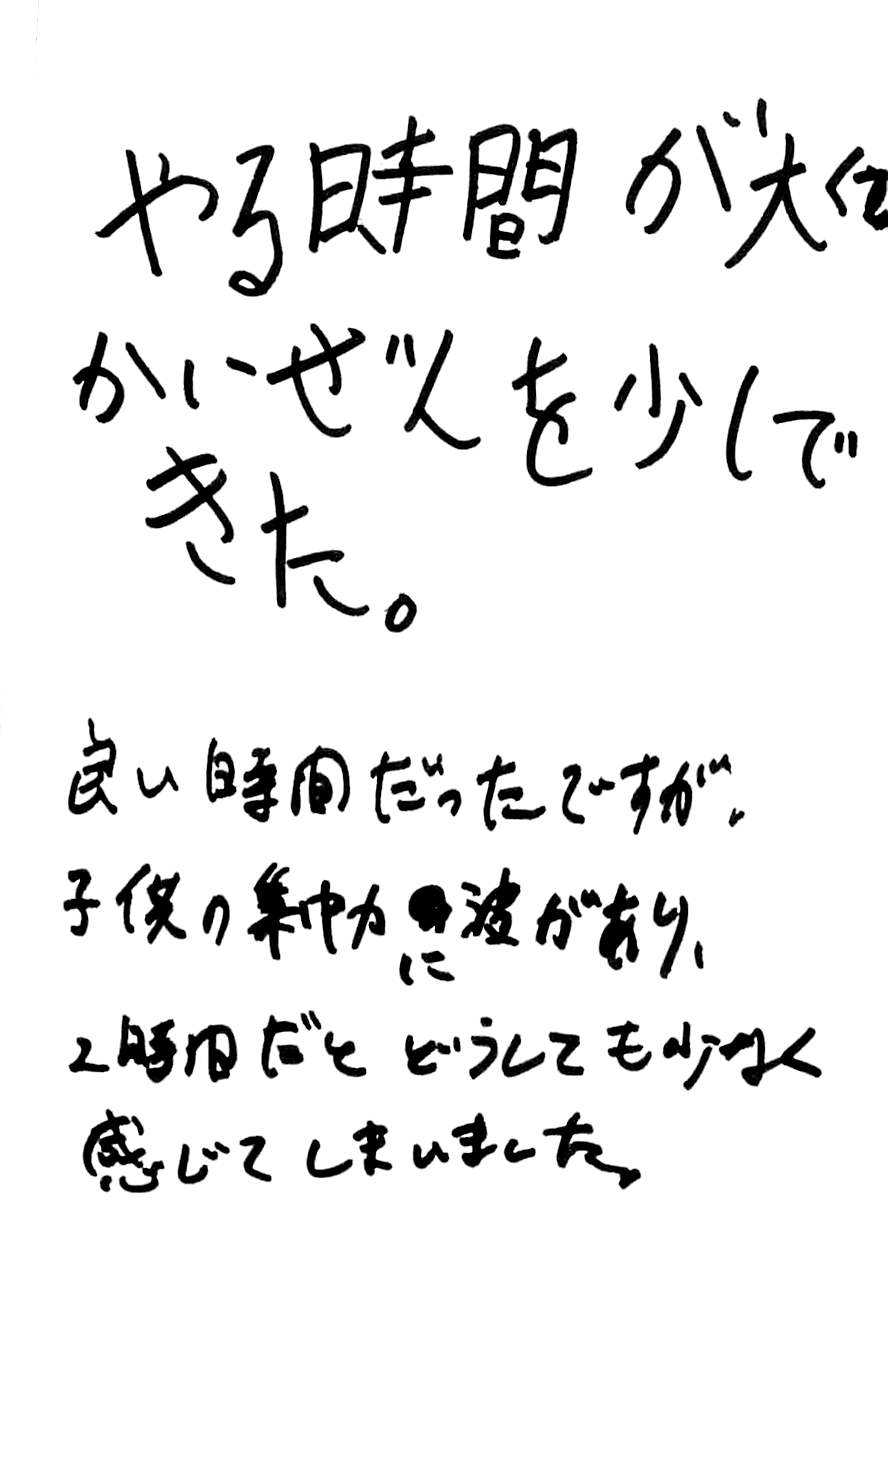 やる時間が大く
かいぜんを少しで
きた。
良い時間だったですが、
子供の集中力に波があり、
2時間だとどうしても少なく
感じてしまいました。